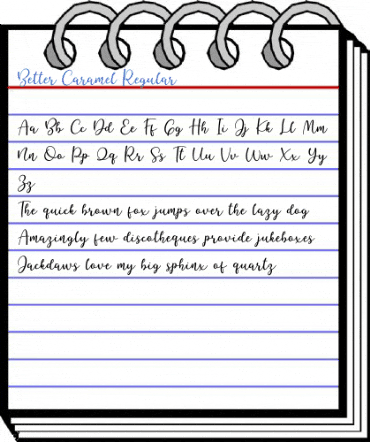 Better Caramel Regular
Aa Bb Cc Dd Ee Ff Gg Hh Ii Jj Kk Ll Mm
Nn Oo Pp Qq Rr Ss Tt Uu Vv Ww Xx Yy
Zz
The quick brown fox jumps over the lazy dog
Amazingly few discotheques provide jukeboxes
Jackdaws love my big sphinx of quartz